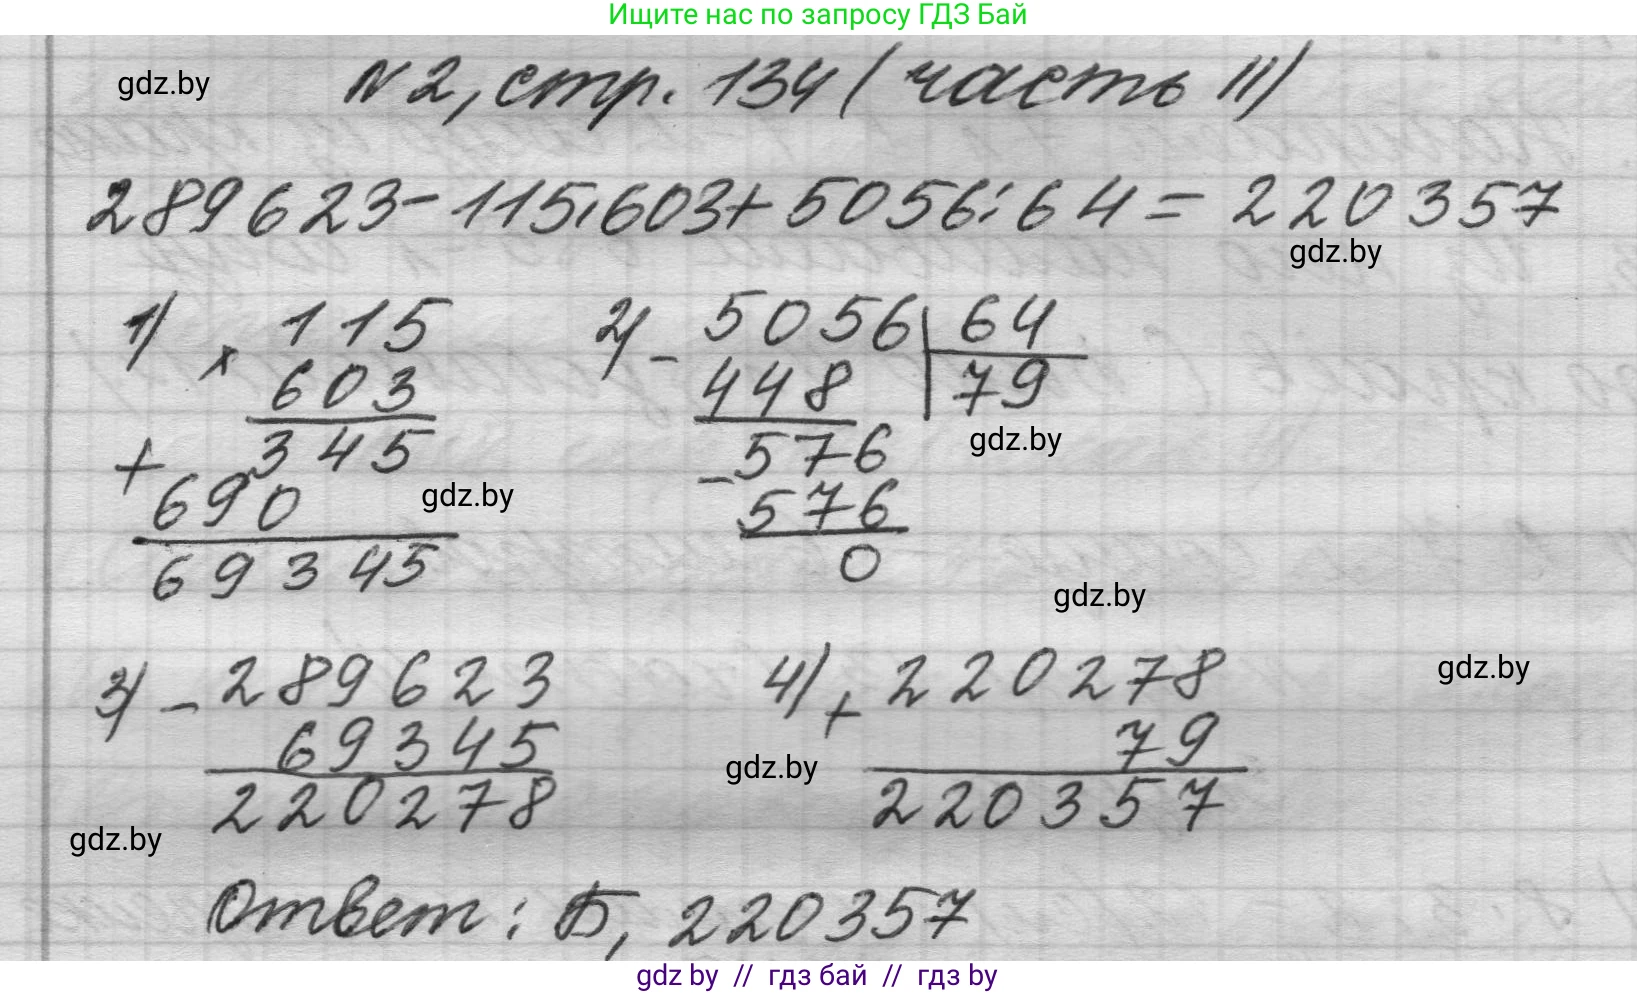 Ищите нас по запросу ГДЗ Бай
gdz.by
N 2, стр. 134 (часть II)
289623-115·603+5056:64=220357
gdz.by
1) × 115
603
+ 345
690
69345
gdz.by
2) - 5056 | 64
448 | 79
- 576
576
0
gdz.by
gdz.by
3) - 289623
69345
220278
4) + 220278
79
220357
gdz.by
gdz.by
gdz.by
Ответ: Б, 220357
gdz by // гдз бай // гдз by